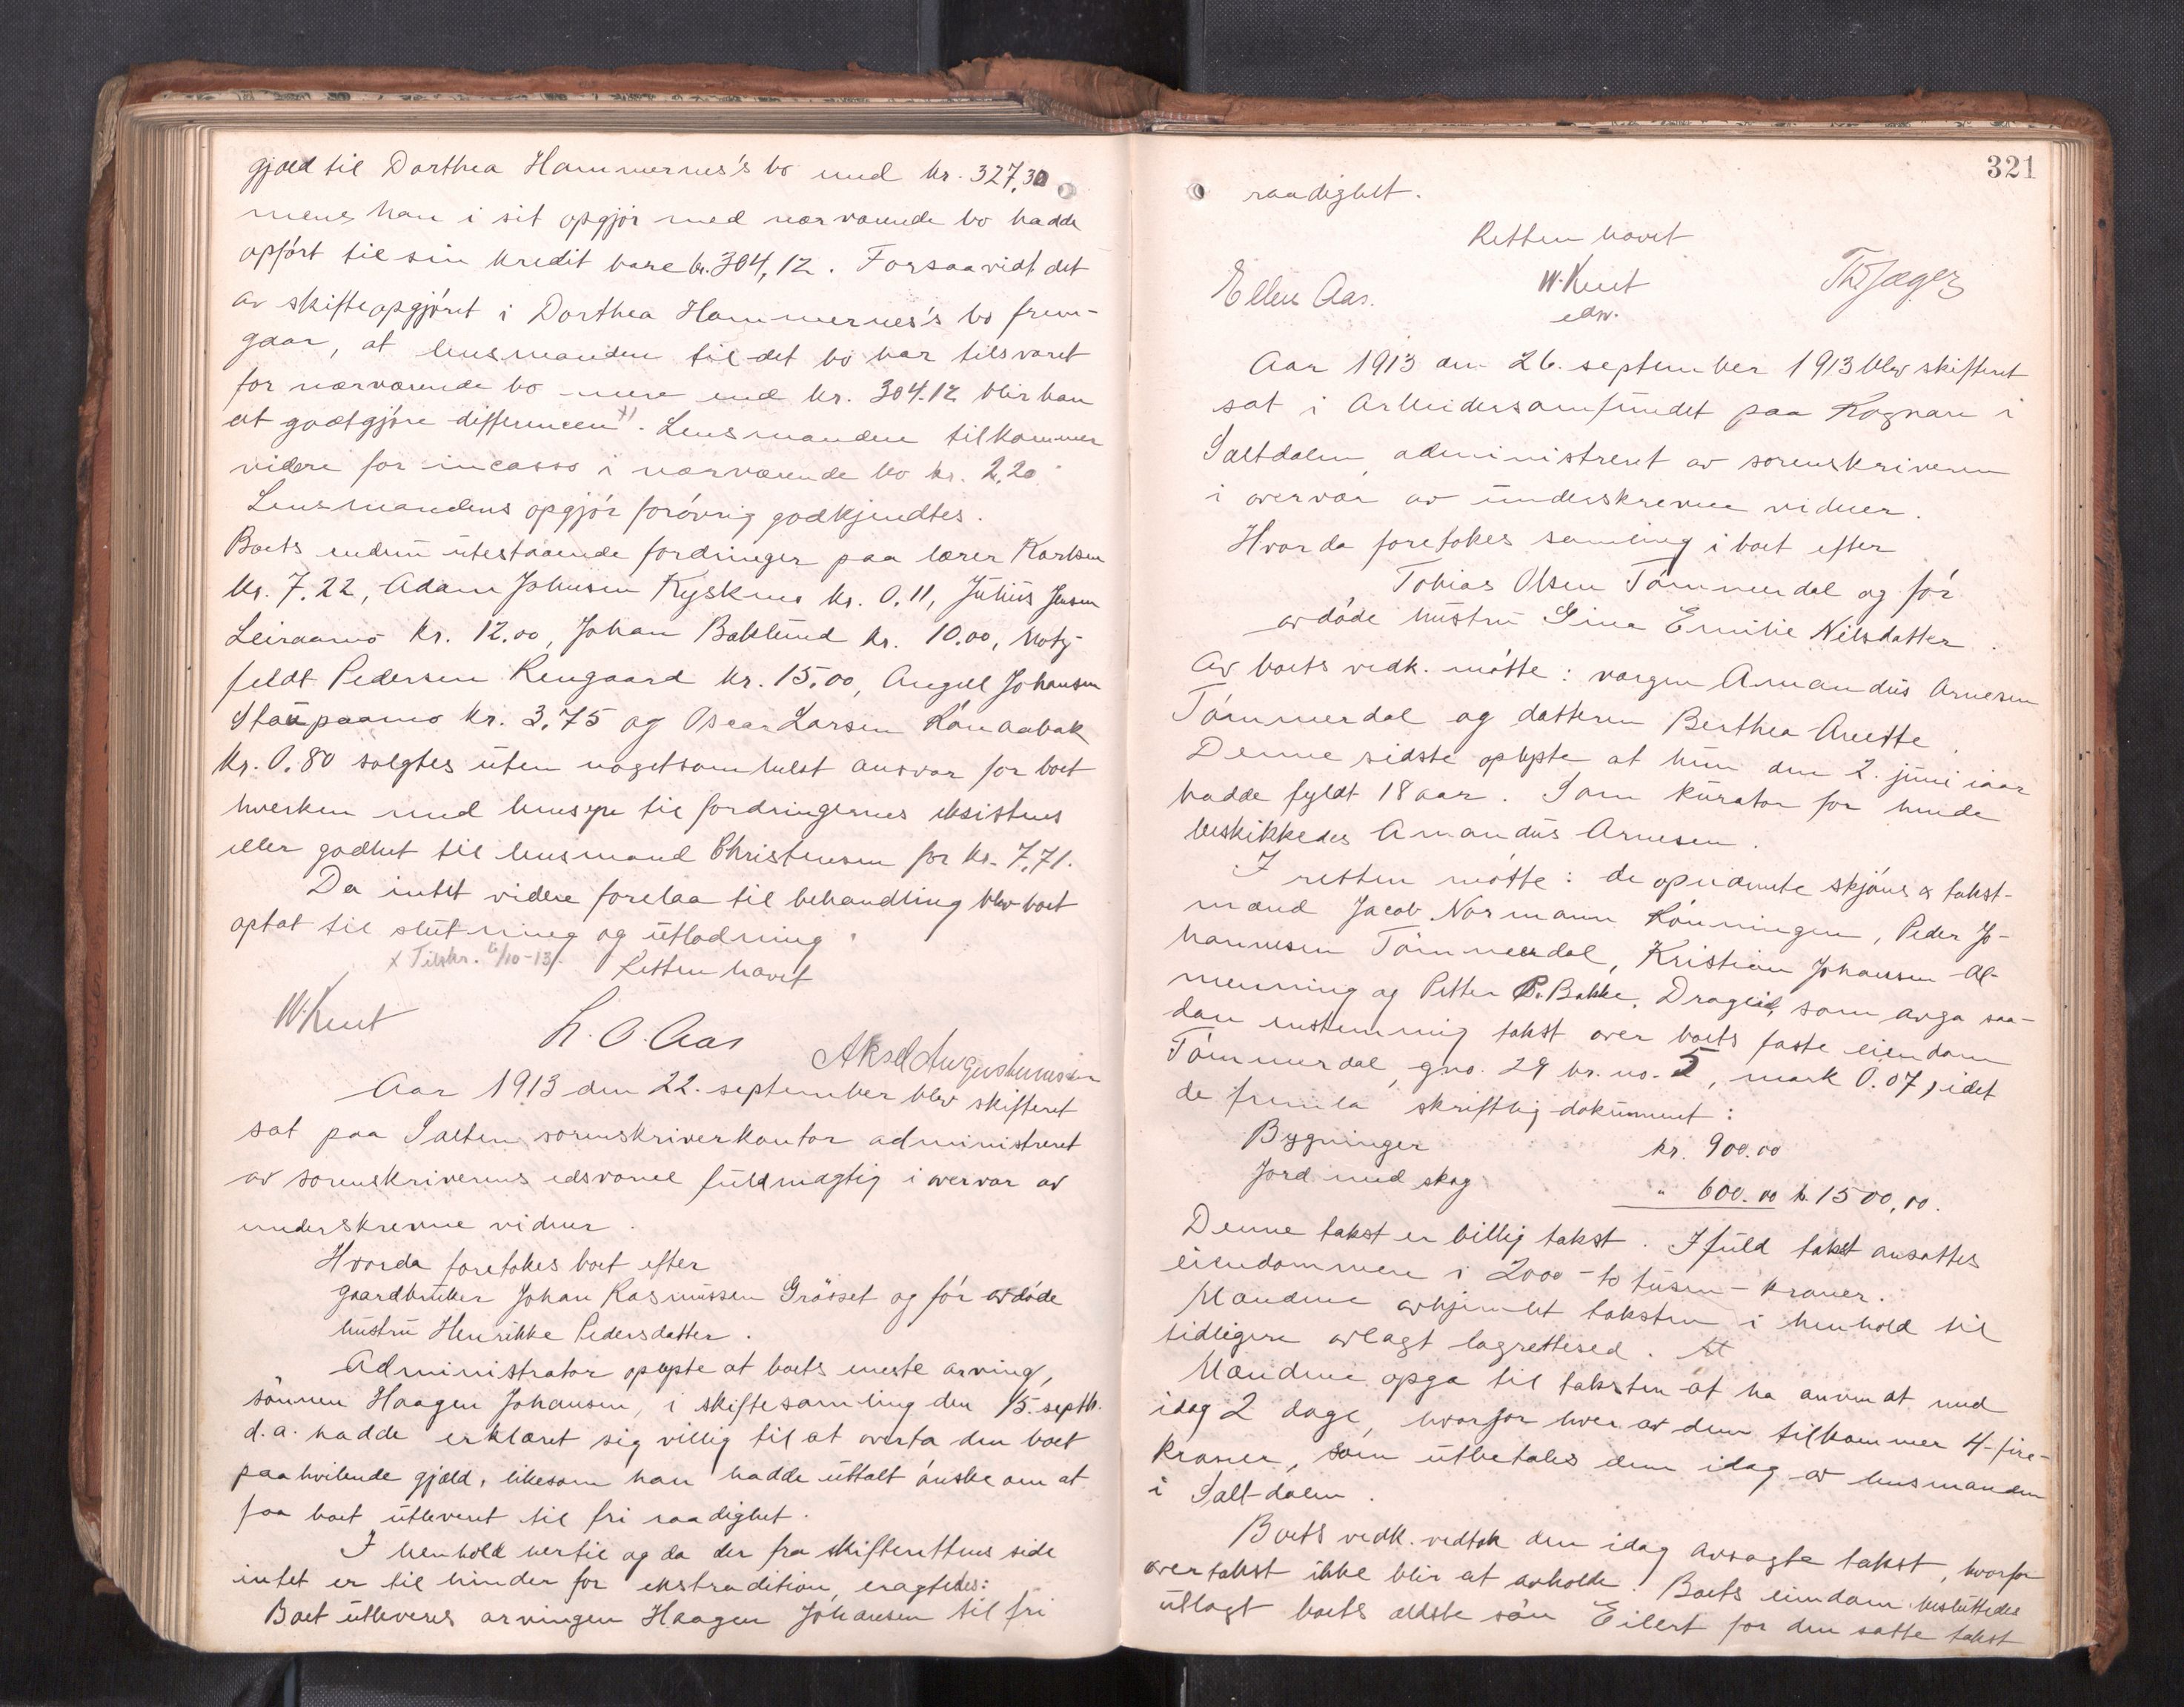 gjæld til Dorthea Hammernes's bo med kr. 327,30
mens han i sit opgjör med nærværende bo hadde
opfört til sin kredit bare kr. 304,12. Forsaavidt det
av skifteopgjöret i Dorthea Hammernes's bo frem-
gaar, at lensmanden til det bo har tilsvaret
for nærværende bo mere end kr. 304.12 blir han
at godtgjöre differencen x). Lensmanden tilkommer
videre for incasso i nærværende bo kr. 2,20.
Lensmandens opgjör forövrig godkjendtes.
Boets endnu utestaaende fordringer paa lærer Karlsen
kr. 7.22, Adam Johnsen Kysknes kr. 0.11, Julius Jensen
Leiraamo kr. 12.00, Johan Baklund kr. 10.00, Motz-
feldt Pedersen Rengaard kr. 15.00, Angel Johansen
Staupaamo kr. 3.75 og Oscar Larsen Rönaabak
kr. 0.80 solgtes uten nogetsomhelst ansvar for boet
hverken med hensyn til fordringernes eksistens
eller godhet til lensmand Christensen for kr. 7.71.
Da intet videre forelaa til behandling blev boet
optat til slutning og utlodning.
x Tilskr. 6/10-13. Retten hævet
W. Kent L. O. Aas Aksel Augustinussen
Aar 1913 den 22. september blev skifteret
sat paa Salten sorenskriverkontor administreret
av sorenskriverens edsvorne fuldmægtig i overvær av
underskrevne vidner.
Hvorda foretokes boet efter
gaardbruker Johan Rasmussen Grösset og för avdöde
hustru Henrikke Pedersdatter.
Administrator oplyste at boets eneste arving,
sönnen Haagen Johansen, i skiftesamling den 15. septb.
d.a. hadde erklæret sig villig til at overta den boet
paahvilende gjæld, likesom han hadde uttalt önske om at
faa boet utleveret til fri raadighet.
I henhold hertil og da der fra skifterettens side
intet er til hinder for ekstradition, eragtedes:
Boet utleveres arvingen Haagen Johansen til fri
321
raadighet.
Retten hævet
Ellen Aas. W. Kent Th. Jæger
edsv.
Aar 1913 den 26. september 1913 blev skifteret
sat i Arbeidersamfundet paa Rognan i
Saltdalen, administreret av sorenskriveren
i overvær av underskrevne vidner.
Hvorda foretokes samling i boet efter
Tobias Olsen Tömmerdal og för
avdöde hustru Gina Emilie Nilsdatter.
Av boets vedk. mötte: vergen Amandus Arnesen
Tömmerdal og datteren Berthea Anette.
Denne sidste oplyste at hun den 2. juni iaar
hadde fyldt 18 aar. Som kurator for hende
beskikkedes Amandus Arnesen.
I retten mötte: de opnævnte skjöns & takst-
mænd Jacob Normann Rönningen, Peder Jo-
hannesen Tömmerdal, Kristian Johansen Al-
menning og Petter P. Bakke, Drageid, som avga saa-
dan enstemmig takst over boets faste eiendom
Tömmerdal, gno. 29 br. no. 5, mark 0.07, idet
de fremla skriftlig dokument:
Bygninger kr. 900.00
Jord med skog " 600.00 kr. 1500,00.
Denne takst er billig takst. I fuld takst ansattes
eiendommen i 2000 - to tusen - kroner.
Mændene avhjemlet taksten i henhold til
tidligere avlagt lagrettesed. At
Mændene opga til taksten at ha anvendt med
idag 2 dage, hvorfor hver av dem tilkommer 4 - fire -
kroner, som utbetales dem idag av lensmanden
i Saltdalen.
Boets vedk. vedtok den idag avsagte takst, hvorfor
overtakst ikke blir at avholde. Boets eiendom besluttedes
utlagt boets ældste sön Eilert for den satte takst